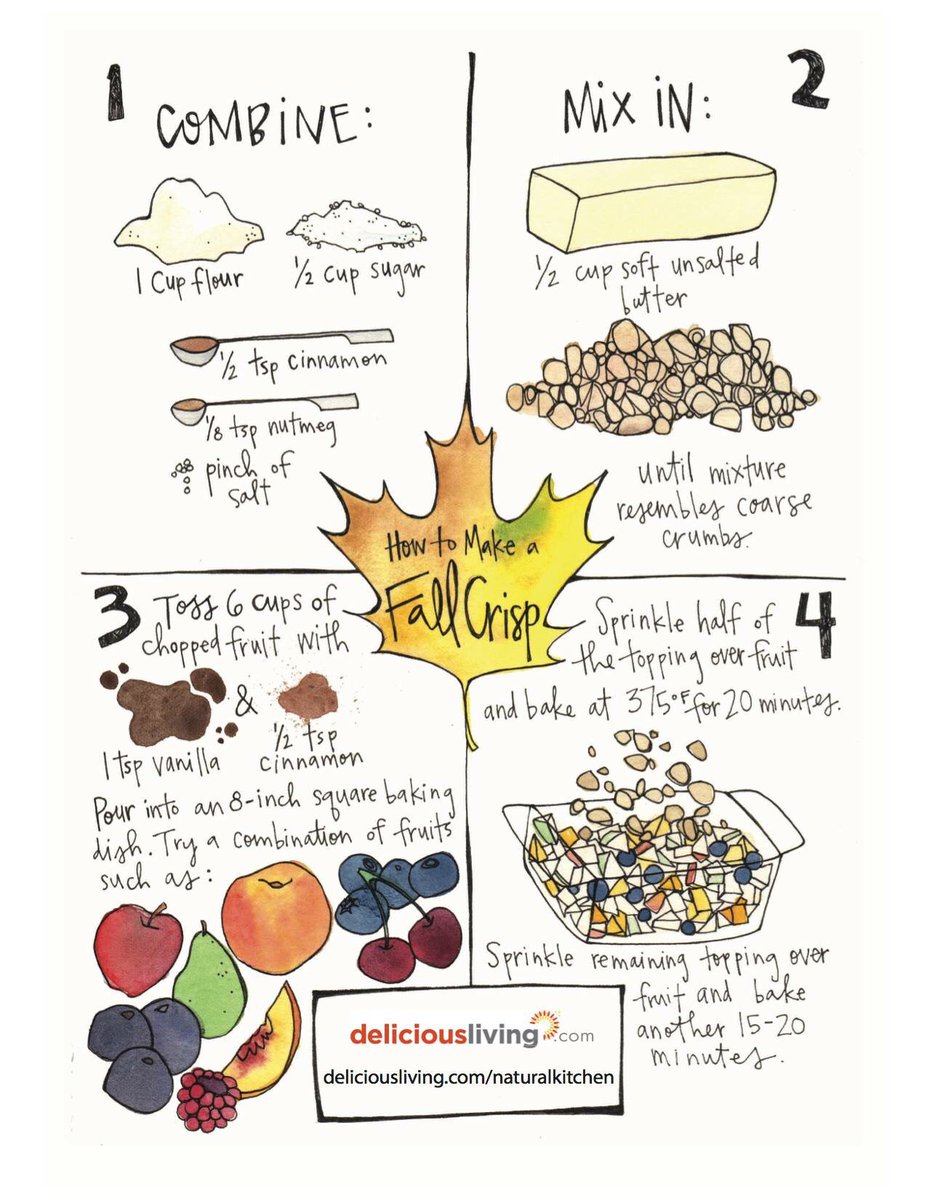 1
COMBINE:
1 cup flour
1/2 cup sugar
1/2 tsp cinnamon
1/8 tsp nutmeg
pinch of
salt
2
Mix iN:
1/2 cup soft unsalted
butter
until mixture
resembles coarse
crumbs.
How to Make a
Fall Crisp
3
Toss 6 cups of
chopped fruit with
&
1 tsp vanilla
1/2 tsp
cinnamon
Pour into an 8-inch square baking
dish. Try a combination of fruits
such as:
4
Sprinkle half of
the topping over fruit
and bake at 375°F for 20 minutes.
Sprinkle remaining topping over
fruit and bake
another 15-20
minutes.
deliciousliving.com
deliciousliving.com/naturalkitchen